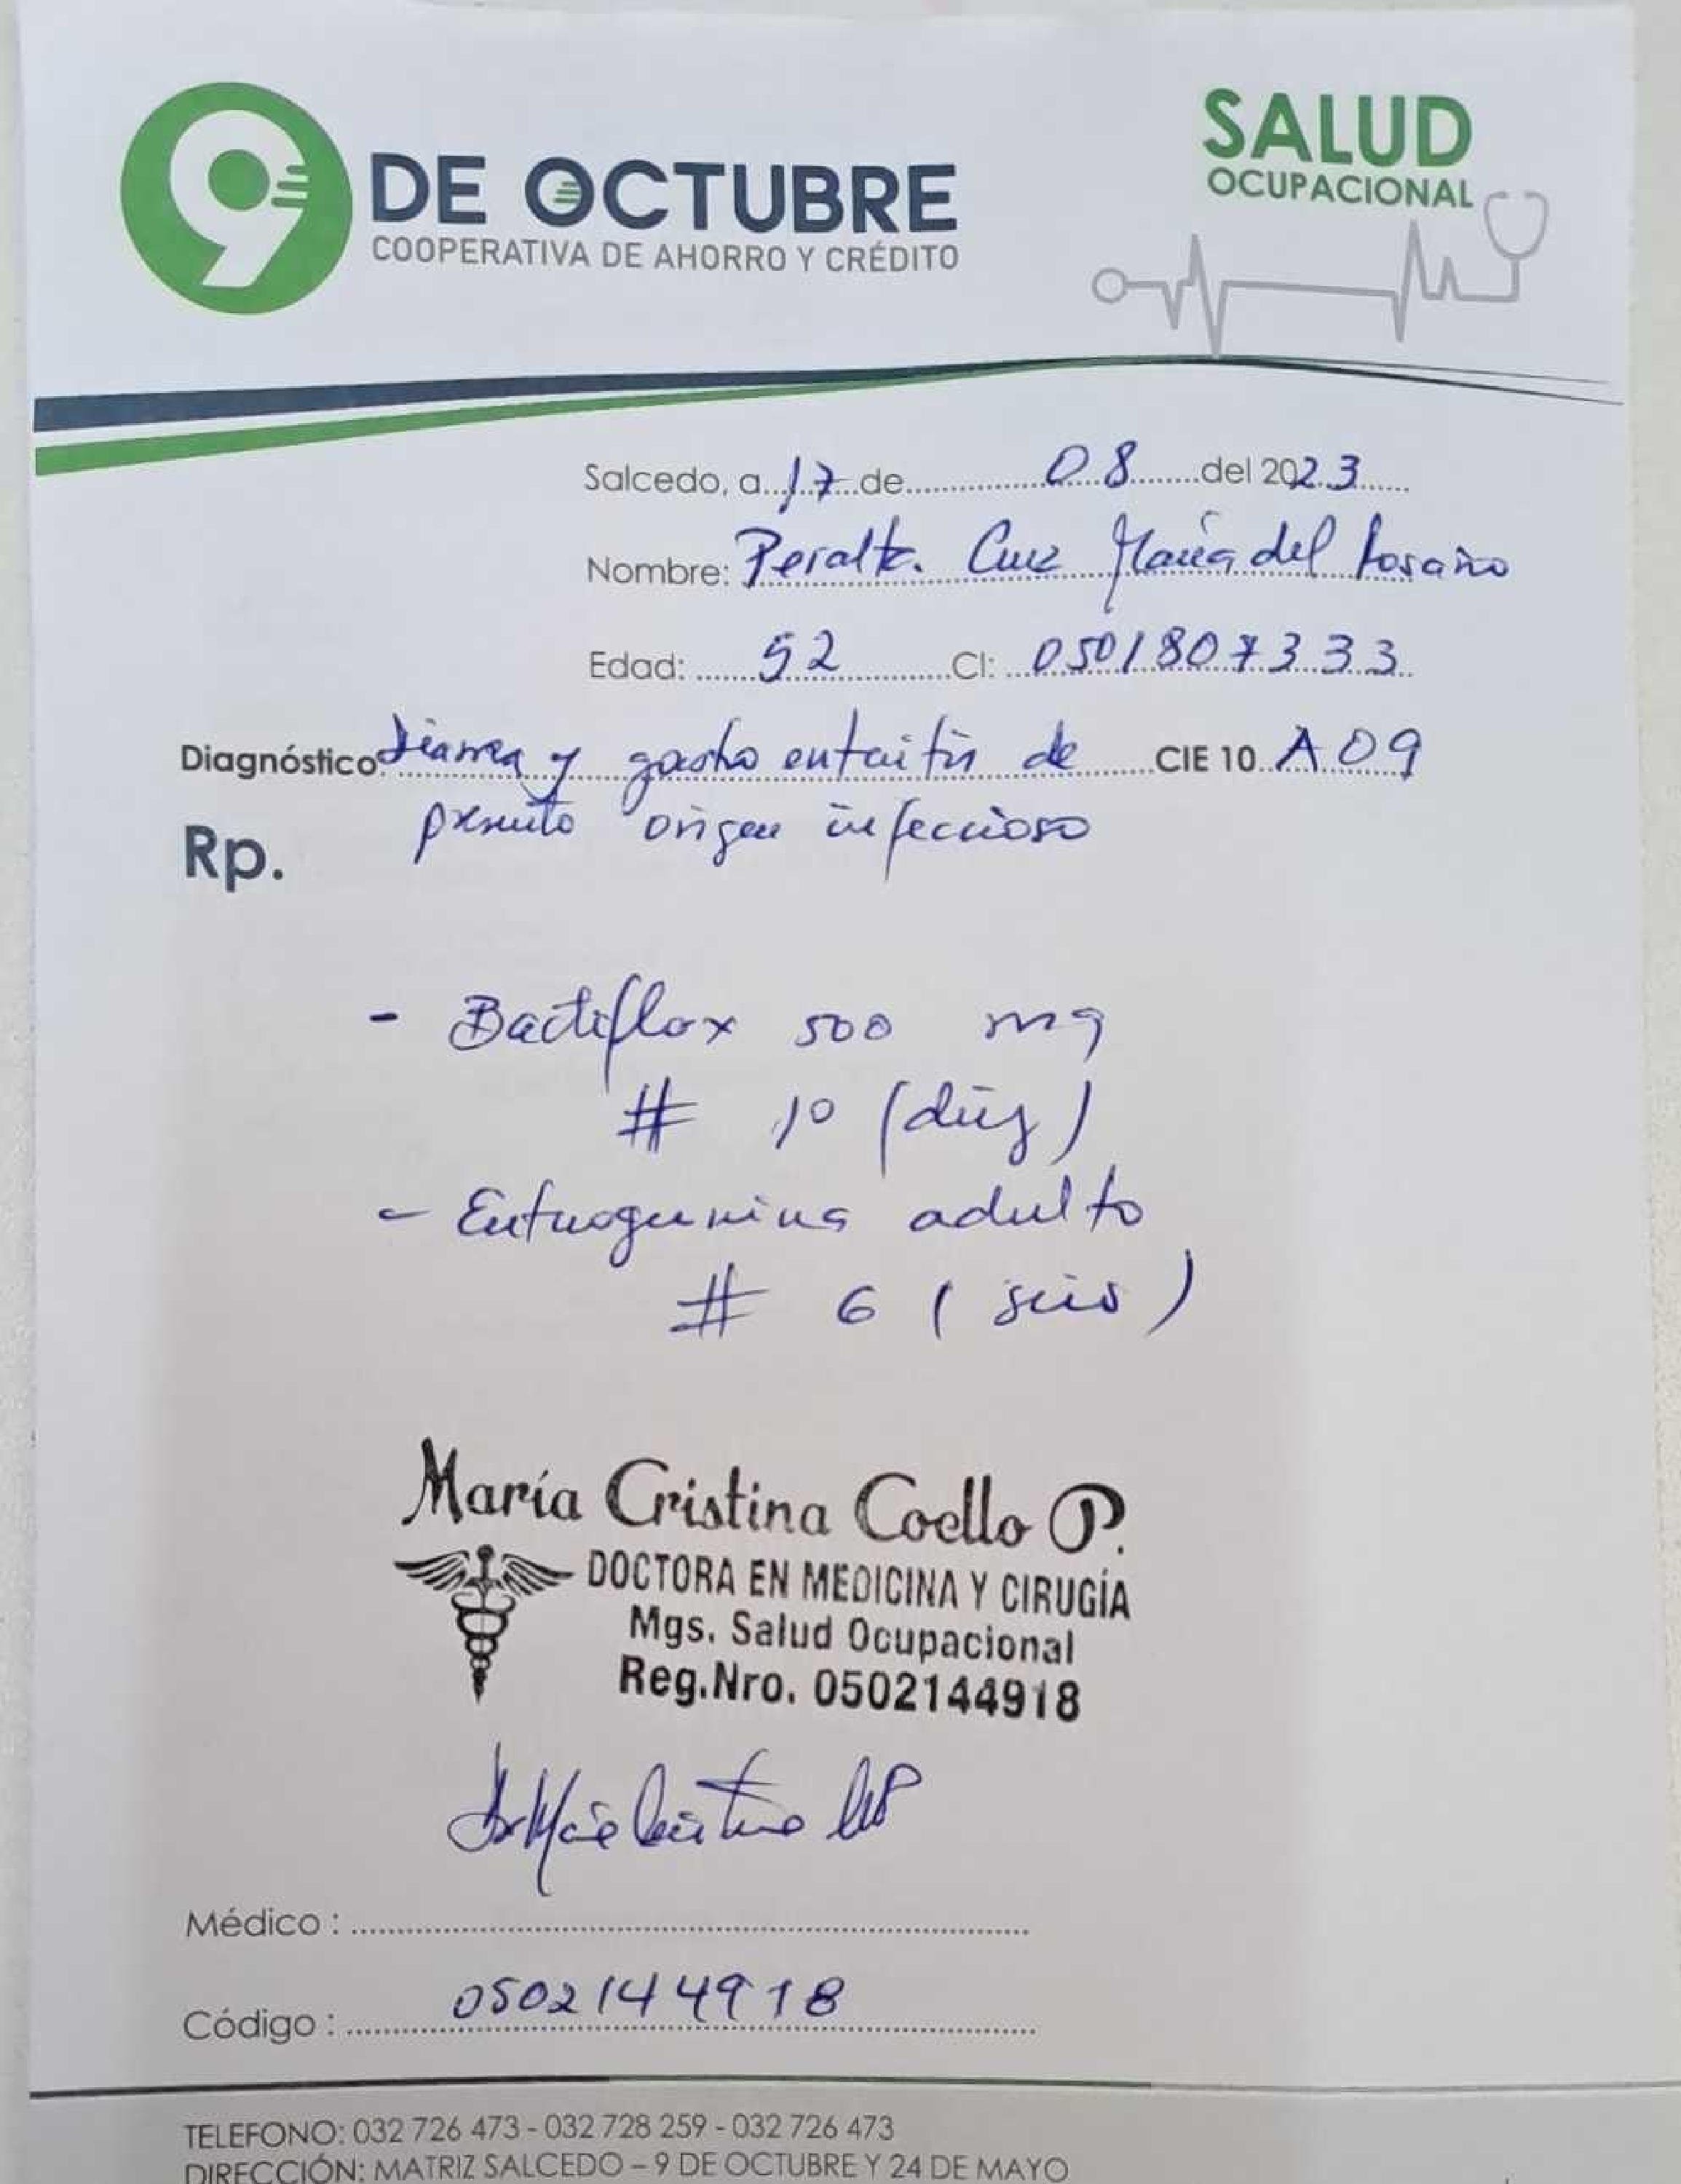 9 DE OCTUBRE
COOPERATIVA DE AHORRO Y CRÉDITO
SALUD
OCUPACIONAL
Salcedo, a 17 de 08 del 2023
Nombre: Peralta Cruz María del Rosario
Edad: 52 CI: 0501807333
Diagnóstico: Diarrea y gastroenteritis de CIE 10 A09
presunto origen infeccioso
Rp.
- Bactiflox 500 mg
# 10 (diez)
- Enterogermina adulto
# 6 (seis)
María Cristina Coello P.
DOCTORA EN MEDICINA Y CIRUGÍA
Mgs. Salud Ocupacional
Reg.Nro. 0502144918
Médico :
Código : 0502144918
TELEFONO: 032 726 473 - 032 728 259 - 032 726 473
DIRECCIÓN: MATRIZ SALCEDO – 9 DE OCTUBRE Y 24 DE MAYO